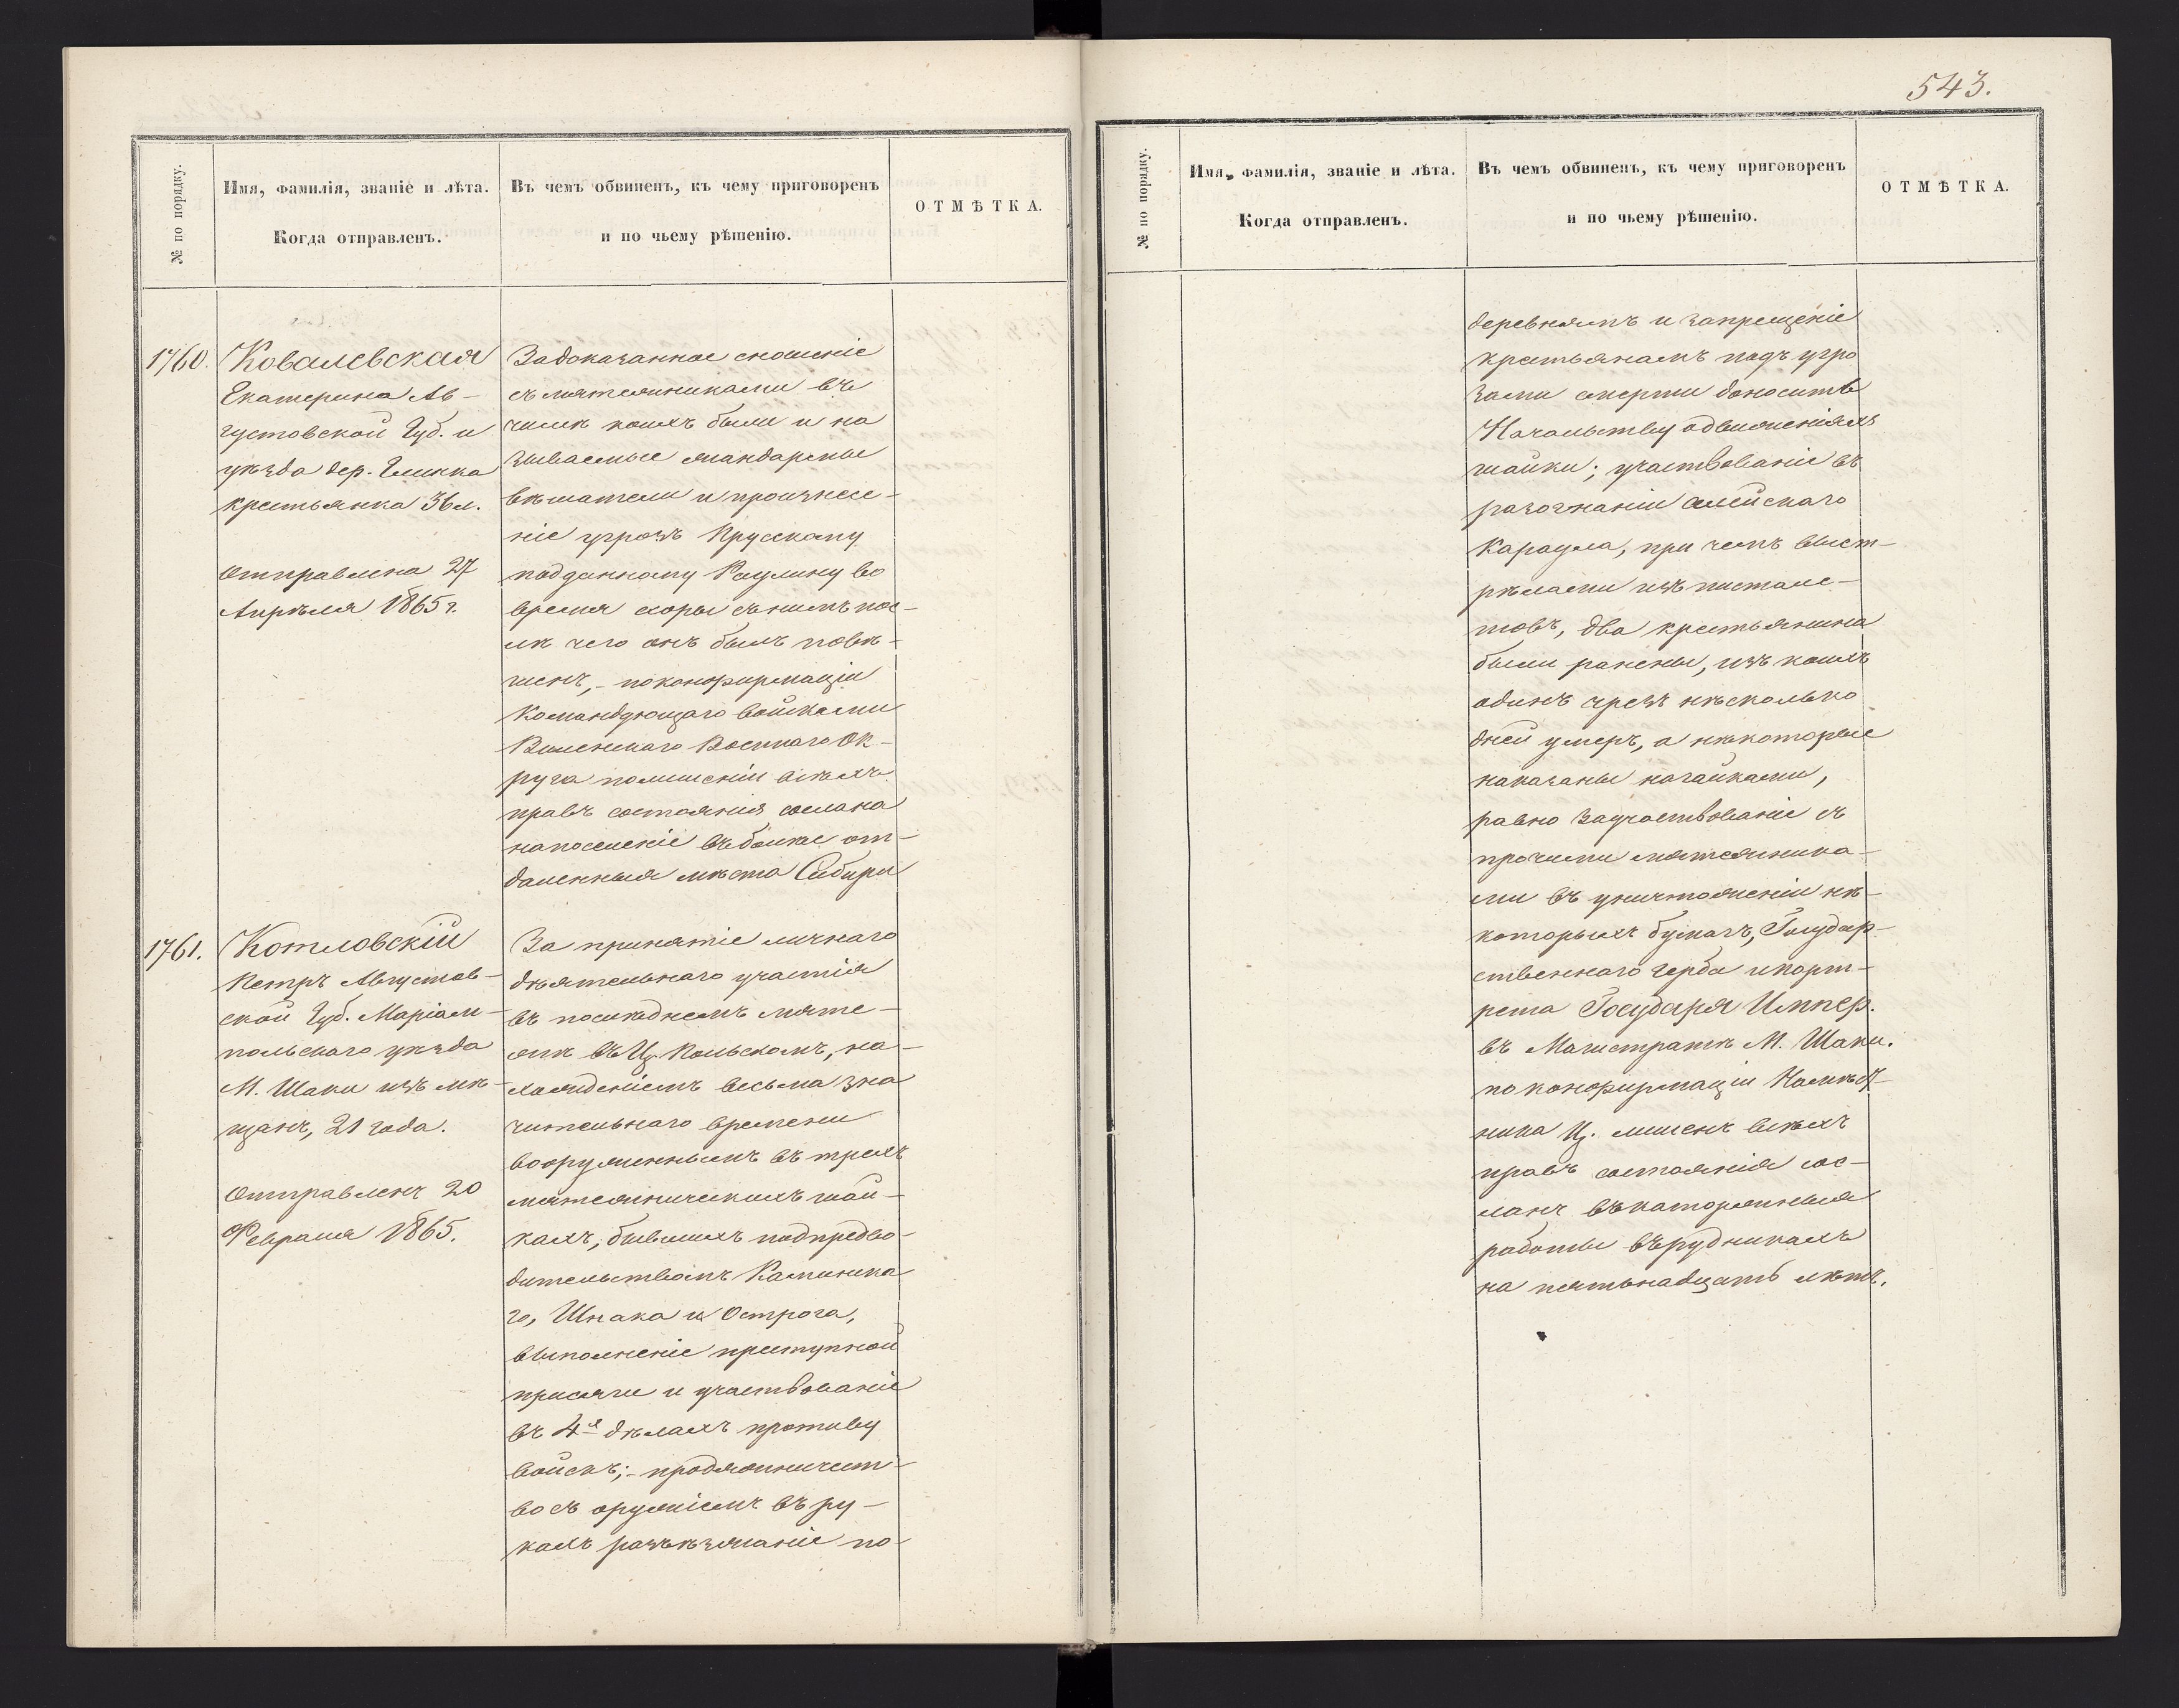 543.
№ по порядку.
Имя, фамилія, званіе и лѣта.
Когда отправленъ.
Въ чемъ обвиненъ, къ чему приговоренъ
и по чьему рѣшенію.
ОТМѢТКА.
1760.
Ковалевская
Екатерина Ав-
густовской Губ. и
уѣзда дер. Глинка
крестьянка 36 л.
Отправлена 27
Апрѣля 1865 г.
За доказанное сношеніе
съ мятежниками въ
числѣ коихъ были и на
зываемые жандармы
вѣшатели и произнесе-
ніе угрозъ Прусскому
подданному Раулину во
время ссоры съ нимъ пос-
лѣ чего онъ былъ повѣ-
шенъ, - по конфирмаціи
Командующаго войсками
Виленскаго Военнаго Ок-
руга по лишеніи всѣхъ
правъ состоянія сослана
на поселеніе въ болѣе от-
даленныя мѣста Сибири
1761.
Котловскій
Петръ Августов-
ской Губ. Маріам-
польскаго уѣзда
М. Шаки изъ мѣ-
щанъ, 21 года.
Отправленъ 20
Февраля 1865.
За принятіе личнаго
дѣятельнаго участія
въ послѣднемъ мяте-
жѣ въ Ц. Польскомъ, на-
хожденіемъ весьма зна
чительнаго времени
вооруженнымъ въ трехъ
мятежническихъ шай-
кахъ, бывшихъ подъ предво-
дительствомъ Каминска
го, Шнака и Острога,
выполненіе преступной
присяги и участвованіе
въ 4х дѣлахъ противу
войскъ; - продяжничест-
во съ оружіемъ въ ру-
кахъ разъѣзжаніе по
№ по порядку.
Имя, фамилія, званіе и лѣта.
Когда отправленъ.
Въ чемъ обвиненъ, къ чему приговоренъ
и по чьему рѣшенію.
ОТМѢТКА.
деревнямъ и запрещеніе
крестьянамъ подъ угро
зами смерти доносить
Начальству о движеніяхъ
шайки; участвованіе въ
разогнаніи сельскаго
караула, при чемъ выст-
рѣлами изъ пистоле-
товъ, два крестьянина
были ранены, изъ коихъ
одинъ чрезъ нѣсколько
дней умеръ, а нѣкоторые
наказаны нагайками,
равно за участвованіе съ
прочими мятежника-
ми въ уничтоженіи нѣ-
которыхъ бумагъ, Государ-
ственнаго герба и порт-
рета Государя Импер.
въ Магистратѣ М. Шаки.
по конфирмаціи Намѣст-
ника Ц. лишенъ всѣхъ
правъ состоянія сос-
ланъ въ каторжныя
работы въ рудникахъ
на пятьнадцать лѣтъ.